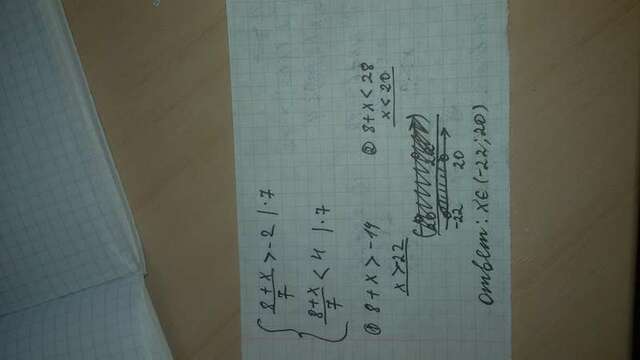 { 8+x/7 > -2 | ·7
{ 8+x/7 < 4 | ·7
① 8+x > -14
x > -22
② 8+x < 28
x < 20
-22 20
Ответ: x∈(-22; 20)